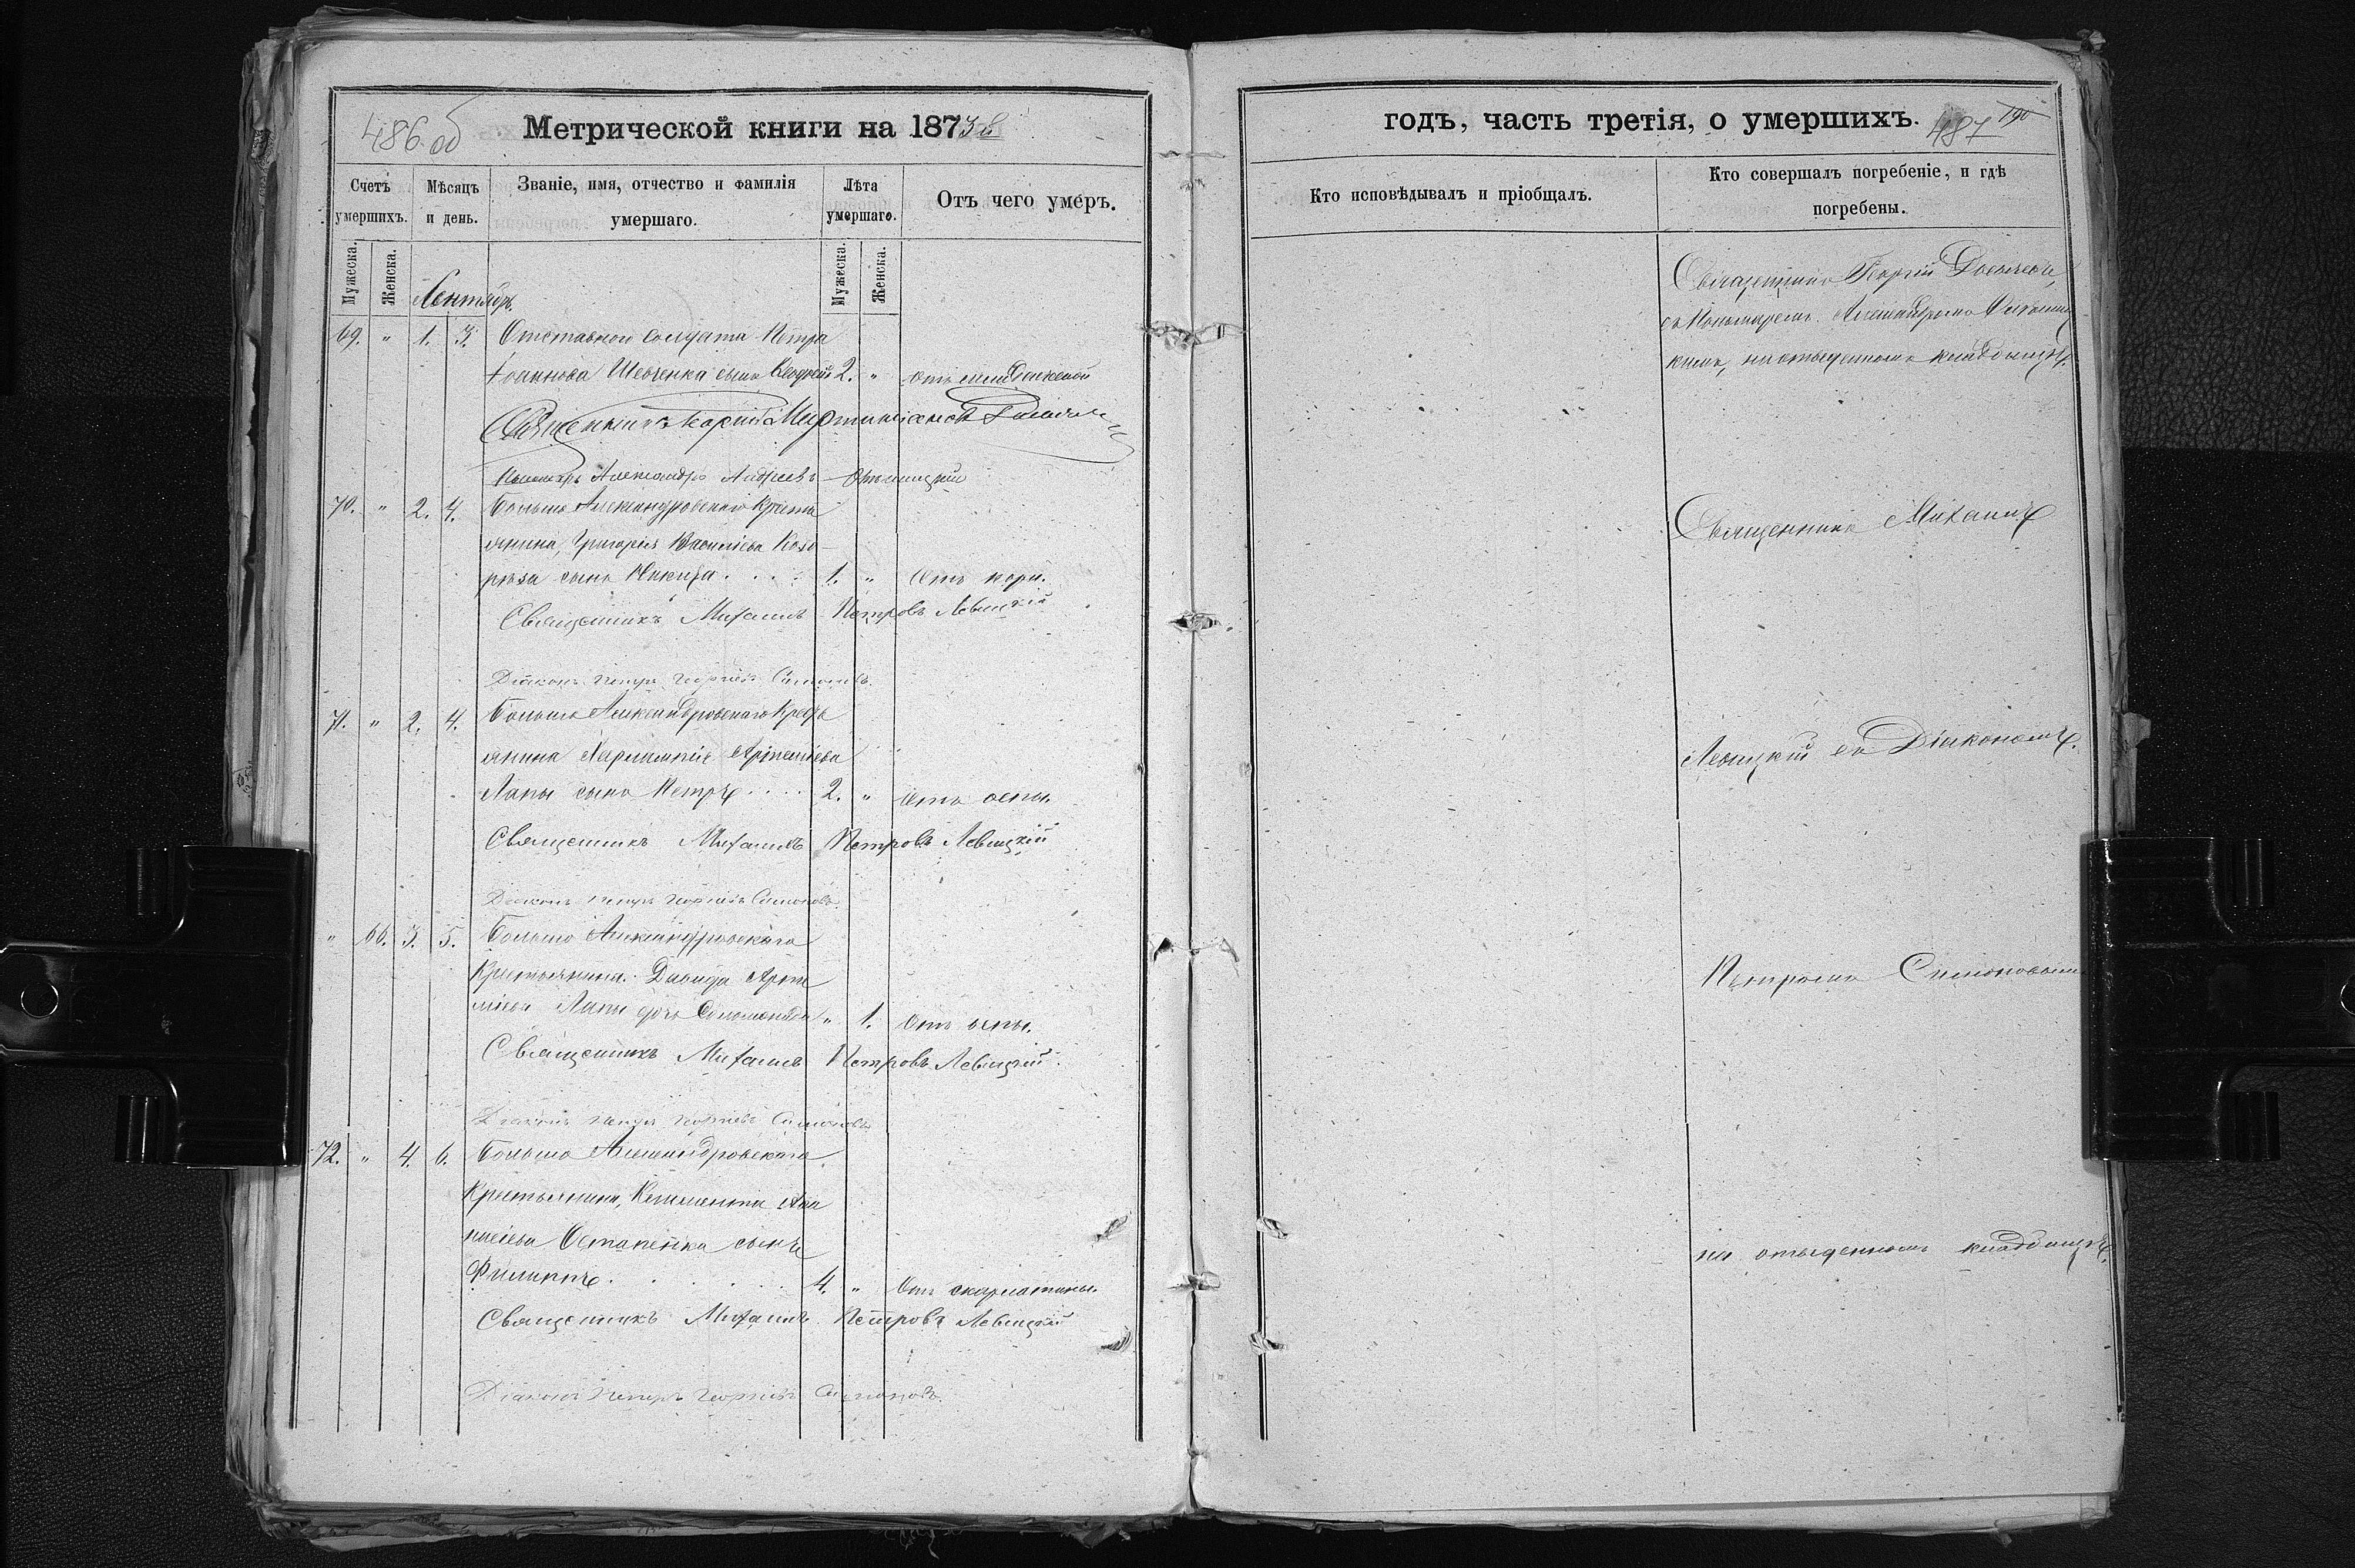 486 об
Метрической книги на 1873 й
Счетъ умершихъ.
Мѣсяцъ и день.
Званіе, имя, отчество и фамилія умершаго.
Лѣта умершаго.
Отъ чего умеръ.
Мужеска.
Женска.
Мужеска.
Женска.
Сентябрь
69. " 1. 3. Отставного солдата Петра
Іоаннова Шевченка сынъ 2. " отъ
Священникъ Георгій
Александръ Андреевъ
70. " 2. 4. Больше Александровскаго Кресть
янина, Григорія Васильева Козо-
рѣза сынъ Никита . . . . 1. " Отъ кори.
Священникъ Михаилъ Петровъ Левицкій
Діаконъ Петръ Георгіевъ Симоновъ
71. " 2. 4. Больше Александровскаго Кресть
янина Харлампія Артеміева
Лапы сынъ Петръ . . . . 2. " Отъ оспы.
Священникъ Михаилъ Петровъ Левицкій
Діаконъ Петръ Георгіевъ Симоновъ
" 66. 3. 5. Больше Александровскаго
Крестьянина Давида Арте
міева Лапы дочь Соломонида " 1. Отъ оспы.
Священникъ Михаилъ Петровъ Левицкій
Діаконъ Петръ Георгіевъ Симоновъ
72. " 4. 6. Больше Александровскаго
Крестьянина, Климента Афа
насіева Остапенка сынъ
Филиппъ . . . . . . 4. " Отъ скарлатины.
Священникъ Михаилъ Петровъ Левицкій
Діаконъ Петръ Георгіевъ Симоновъ
годъ, часть третія, о умершихъ.
487 190
Кто исповѣдывалъ и пріобщалъ.
Кто совершалъ погребеніе, и гдѣ погребены.
Священникъ Георгій
съ Пономаремъ Александромъ
на отведенномъ кладбищѣ.
Священникъ Михаилъ
Левицкій съ Діакономъ
Петромъ Симоновымъ
на отведенномъ кладбищѣ.